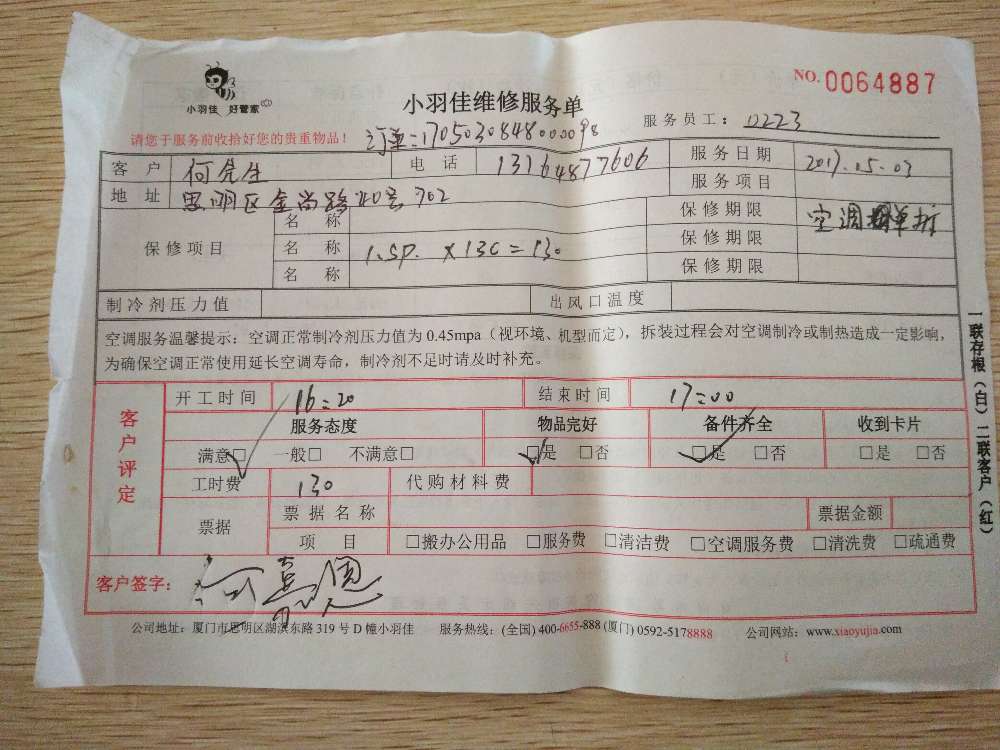 小羽佳 好管家
NO. 0064887
小羽佳维修服务单
服务员工： 0223
请您于服务前收拾好您的贵重物品！ 订单：170503084800098
客 户 何先生 电 话 13164877606 服务日期 2017.05.03
地 址 思明区金尚路40号702 服务项目 空调 单拆
保修项目 名 称 保修期限
名 称 1.5P. ×130=130 保修期限
名 称 保修期限
制冷剂压力值 出风口温度
空调服务温馨提示：空调正常制冷剂压力值为 0.45mpa（视环境、机型而定），拆装过程会对空调制冷或制热造成一定影响，
为确保空调正常使用延长空调寿命，制冷剂不足时请及时补充。
客户评定
开工时间 16:20 结束时间 17:00
服务态度 物品完好 备件齐全 收到卡片
满意□ 一般□ 不满意□ □是 □否 □是 □否 □是 □否
工时费 130 代购材料费
票据 票据名称 票据金额
项 目 □搬办公用品 □服务费 □清洁费 □空调服务费 □清洗费 □疏通费
客户签字：
公司地址：厦门市思明区湖滨东路 319 号 D 幢小羽佳 服务热线：(全国) 400-6655-888 (厦门) 0592-5178888 公司网站：www.xiaoyujia.com
一联存根（白）二联客户（红）